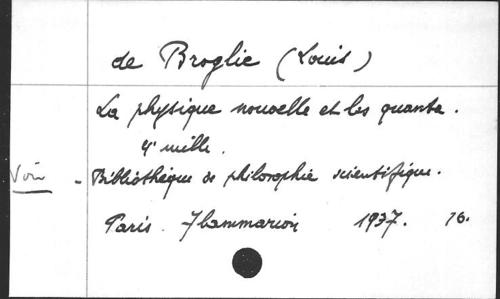 de Broglie (Louis)
La physique nouvelle et les quanta.
4e mille.
Voir - Bibliothèque de philosophie scientifique.
Paris. Flammarion 1937. 16.